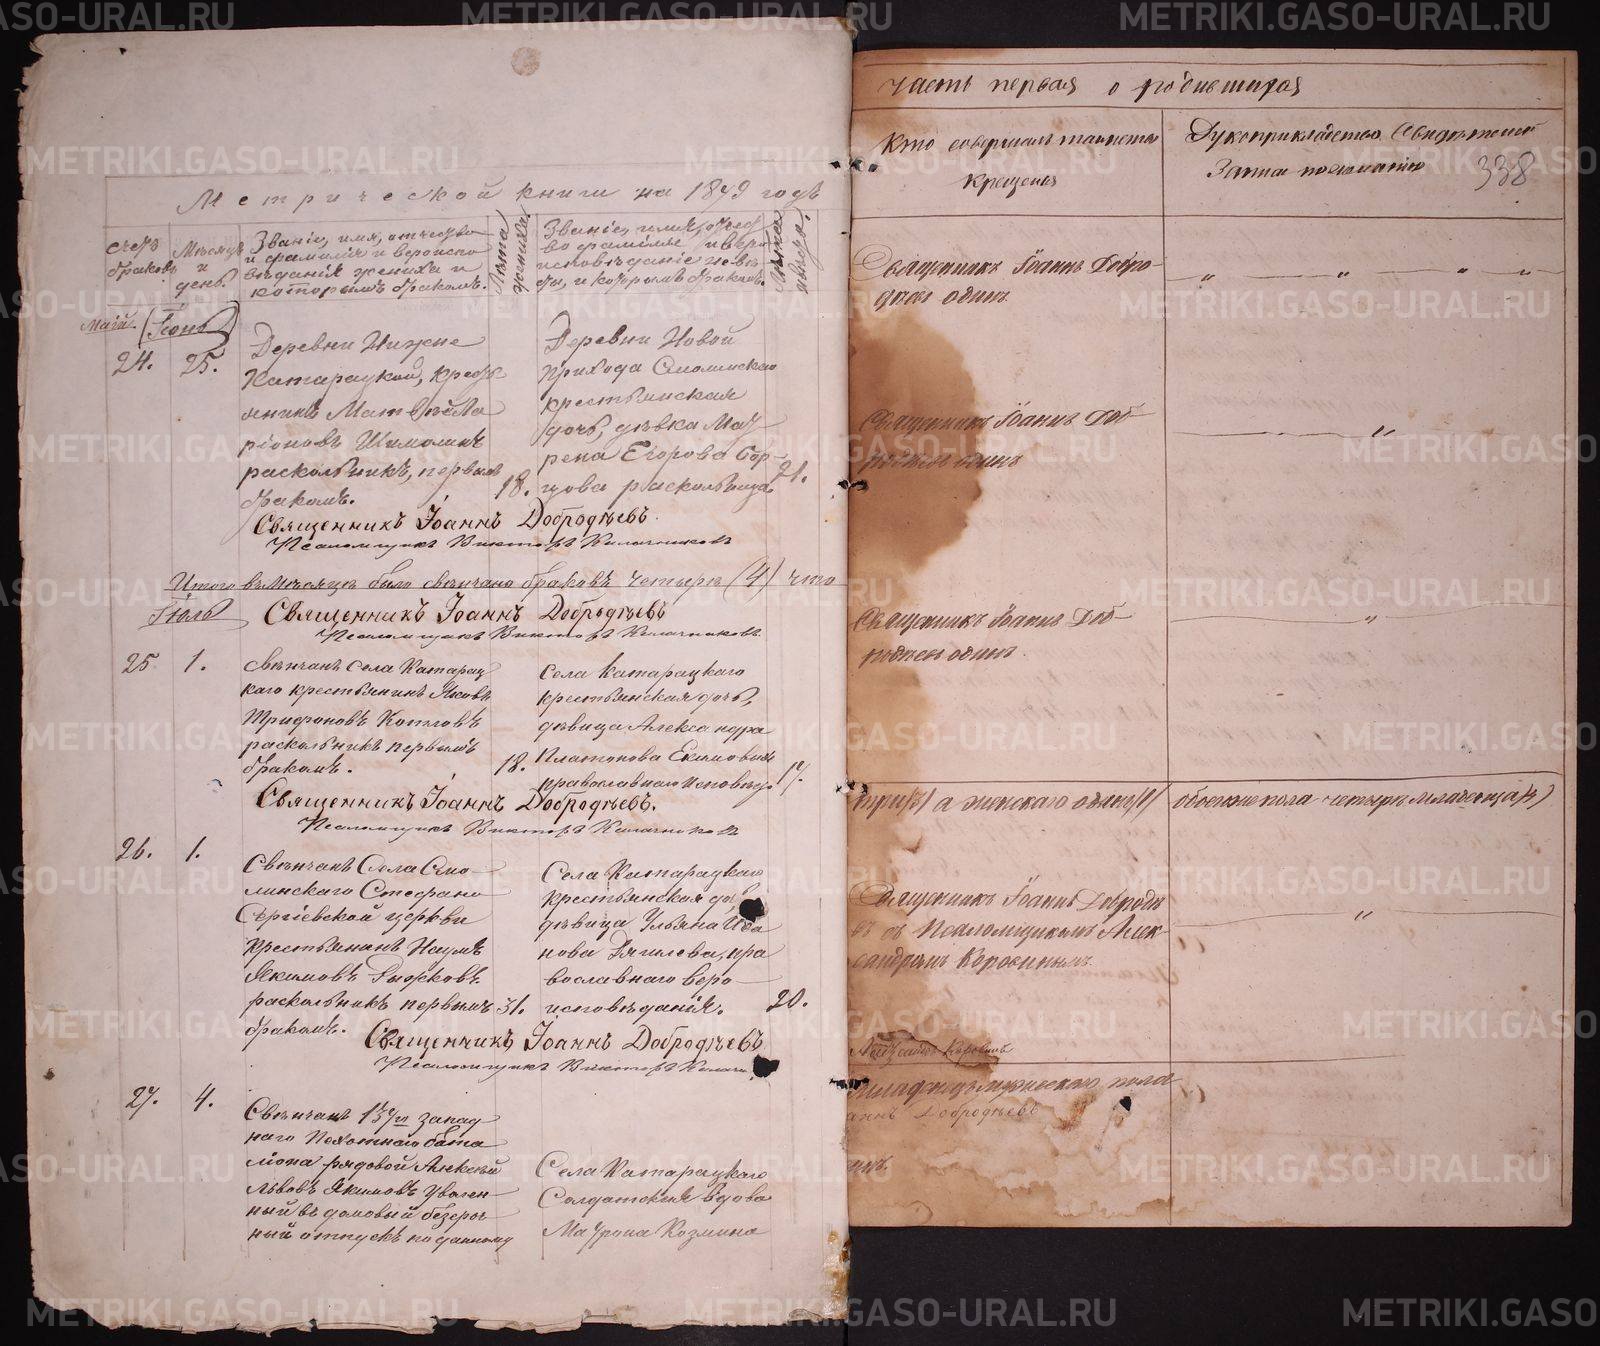 Метрической книги на 1879 годъ
счетъ браковъ
Мѣсяцъ и день.
Званіе, имя, отчество
и фамилія и вѣроиспо
вѣданія жениха и
которымъ бракомъ.
Лѣта жениха.
Званіе, имя, отчест
во фамиліе и вѣро
исповѣданіе невѣ
сты, и которымъ бракомъ.
Лѣта невѣсты.
Маій. (Іюнь)
24. 25.
Деревни Нижне
Катарацкой, крест
янинъ Матвѣй Ла
ріоновъ Шимолинъ
раскольникъ, первымъ
бракомъ.
18.
Деревни Новой
прихода Смолинскаго
крестьянская
дочь, дѣвка Мав
рена Егорова Бор-
цова раскольница
21.
Священникъ Іоаннъ Добродѣевъ.
Псаломщикъ Викторъ Калачниковъ
Итого въ мѣсяцѣ было свѣнчано браковъ четыре (4) что
Іюль
Священникъ Іоаннъ Добродѣевъ
Псаломщикъ Викторъ Калачниковъ
25 1.
свѣнчанъ Села Катарац
каго крестьянинъ Яковъ
Трифоновъ Котловъ
раскольникъ первымъ
бракомъ.
18.
Села Катарацкаго
крестьянская дочь,
дѣвица Александра
Платонова Екимовыхъ
православнаго исповѣд.
17.
Священникъ Іоаннъ Добродѣевъ.
Псаломщикъ Викторъ Калачниковъ
26. 1.
Свѣнчанъ Села Смо-
линскаго Стефано
Сергіевской церкви
крестьянинъ Наумъ
Якимовъ Рыжковъ
раскольникъ первымъ
бракомъ.
31.
Села Катарацкаго
крестьянская до
дѣвица Ульяна Ива
нова Дягилева, пра
вославнаго веро
исповѣданія.
20.
Священникъ Іоаннъ Добродѣевъ
Псаломщикъ Викторъ Калачн
27. 4.
Свѣнчанъ 137го запад
наго Пехотнаго бата
ліона рядовой Алексѣй
Львовъ Якимовъ уволен-
ный въ домовый безсроч
ный отпускъ по данному
Села Катарацкаго
Солдатская вдова
Маврона Козмина
Часть первая о родившихся
Кто совершалъ таинство
Крещенія
Рукоприкладство Свидѣтелей
Записи по желанію
338
Священникъ Іоаннъ Добро-
дѣевъ одинъ.
Священникъ Іоаннъ Доб-
родѣевъ одинъ
Священникъ Іоаннъ Доб-
родѣевъ одинъ.
три (3) а женскаго одного (1)
обоего же пола четыре младенца (4)
Священникъ Іоаннъ Добродѣ
въ съ Псаломщикомъ Алек-
сандромъ Коровинымъ.
младенцъ мужескаго пола
аннъ Добродѣевъ
METRIKI.GASO-URAL.RU